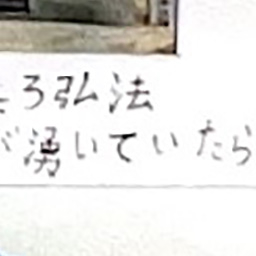 ろ弘法
が湧いていたら